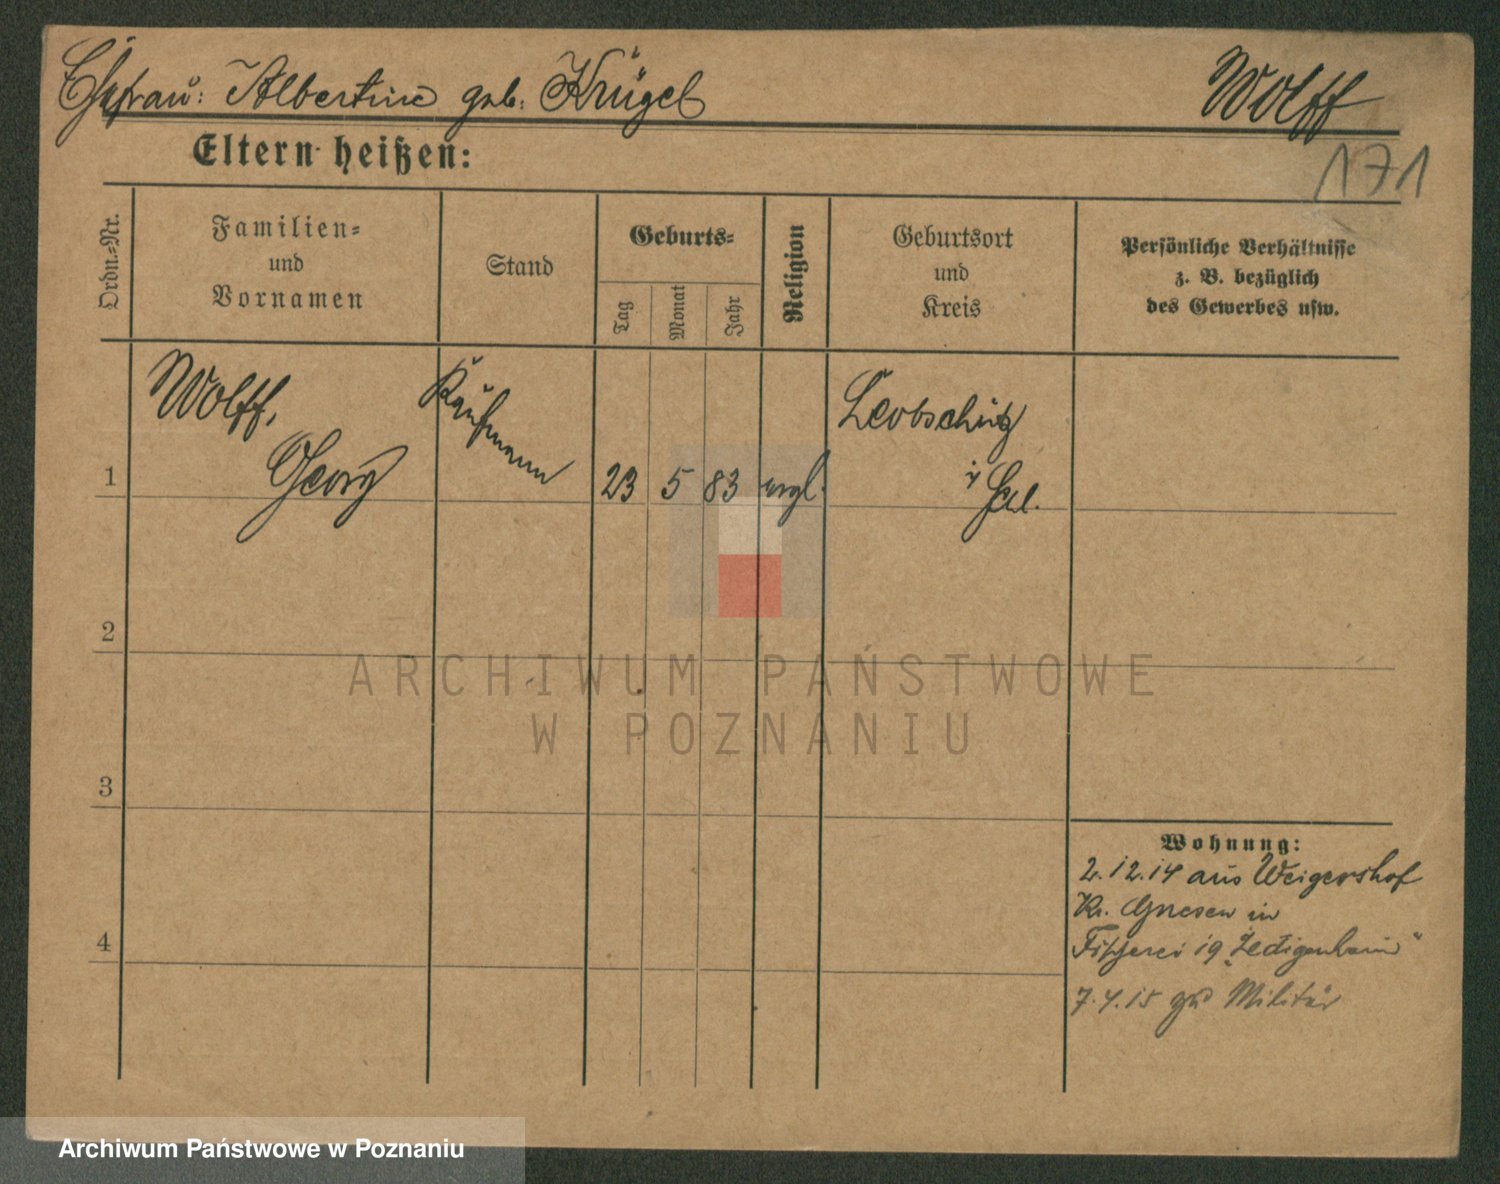 Ehefrau: Albertine geb. Krügel
Wolff
Eltern heißen:
171
Ordn.=Nr.
Familien=
und
Vornamen
Stand
Geburts=
Tag
Monat
Jahr
Religion
Geburtsort
und
Kreis
Persönliche Verhältnisse
z. B. bezüglich
des Gewerbes usw.
1
Wolff,
Georg
Kaufmann
23
5
83
evgl.
Leobschütz
i/ Schl.
2
3
4
Wohnung:
2.12.14 aus Weigershof
Kr. Gnesen in
Fischerei 19
7.4.15 zu Militär
ARCHIWUM PAŃSTWOWE
W POZNANIU
Archiwum Państwowe w Poznaniu